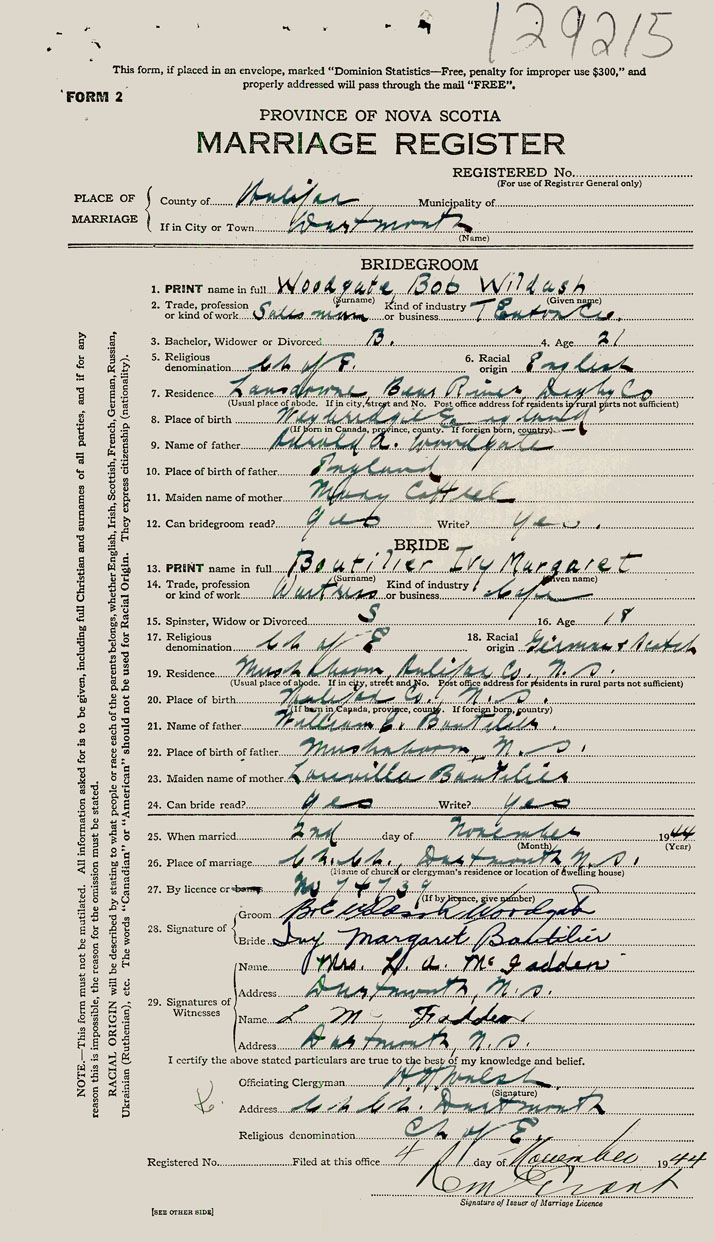 129215
This form, if placed in an envelope, marked "Dominion Statistics—Free, penalty for improper use $300," and
properly addressed will pass through the mail "FREE".
FORM 2
PROVINCE OF NOVA SCOTIA
MARRIAGE REGISTER
REGISTERED No.
(For use of Registrar General only)
PLACE OF MARRIAGE
County of Halifax Municipality of
If in City or Town Dartmouth
(Name)
BRIDEGROOM
1. PRINT name in full Woodgate Bob Wildash
(Surname) (Given name)
2. Trade, profession or kind of work Salesman Kind of industry or business T Eaton Co.
3. Bachelor, Widower or Divorced B. 4. Age 21
5. Religious denomination Ch of E. 6. Racial origin English
7. Residence Lansdowne, Bear River, Digby Co
(Usual place of abode. If in city, street and No. Post office address for residents in rural parts not sufficient)
8. Place of birth Weybridge England
(If born in Canada, province, county. If foreign born, country)
9. Name of father Harold A. Woodgate
10. Place of birth of father England
11. Maiden name of mother Mary Cottrel
12. Can bridegroom read? yes Write? yes.
BRIDE
13. PRINT name in full Boutilier Ivy Margaret
(Surname) (Given name)
14. Trade, profession or kind of work Waitress Kind of industry or business Cafe
15. Spinster, Widow or Divorced S 16. Age 18
17. Religious denomination Ch of E 18. Racial origin German & Scotch
19. Residence Mushaboom, Halifax Co. N.S.
(Usual place of abode. If in city, street and No. Post office address for residents in rural parts not sufficient)
20. Place of birth Halifax Co., N.S.
(If born in Canada, province, county. If foreign born, country)
21. Name of father William E. Boutilier
22. Place of birth of father Mushaboom N.S.
23. Maiden name of mother Louvilla Boutilier
24. Can bride read? yes Write? yes
25. When married 2nd day of November 1944
(Month) (Year)
26. Place of marriage Ch. Ch., Dartmouth N.S.
(Name of church or clergyman's residence or location of dwelling house)
27. By licence or banns No 74739
(If by licence, give number)
28. Signature of
Groom Bob Wildash Woodgate
Bride Ivy Margaret Boutilier
29. Signatures of Witnesses
Name Mrs. L. A. McFadden
Address Dartmouth, N.S.
Name L Mc Fadden
Address Dartmouth, N.S.
I certify the above stated particulars are true to the best of my knowledge and belief.
Officiating Clergyman Walsh
(Signature)
Address Ch Ch. Dartmouth
Religious denomination Ch of E.
Registered No. Filed at this office 4 day of November 1944
Grant
Signature of Issuer of Marriage Licence
[SEE OTHER SIDE]
NOTE.—This form must not be mutilated. All information asked for is to be given, including full Christian and surnames of all parties, and if for any
reason this is impossible, the reason for the omission must be stated.
RACIAL ORIGIN will be described by stating to what people or race each of the parents belongs, whether English, Irish, Scottish, French, German, Russian,
Ukrainian (Ruthenian), etc. The words "Canadian" or "American" should not be used for Racial Origin. They express citizenship (nationality).